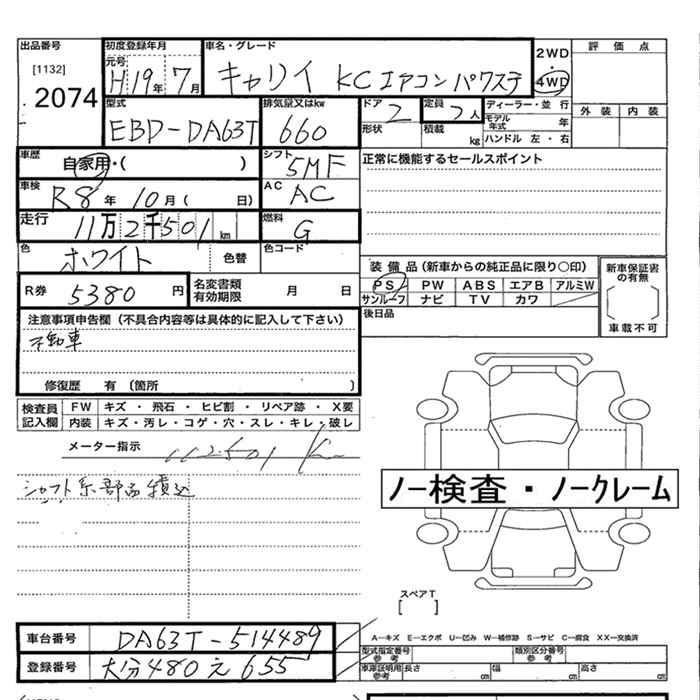 出品番号
[1132]
2074
初度登録年月
元号
H19年 7月
車名・グレード
キャリイ KCエアコンパワステ
2WD
・
4WD
評価点
外装 内装
型式
EBD-DA63T
排気量又はkw
660
ドア
2
形状
定員
2人
積載
kg
ディーラー・並 行
モデル年式 年
ハンドル 左・右
車歴
自家用・( )
シフト
5MF
正常に機能するセールスポイント
車検
R8年 10月( 日)
AC
AC
走行
11万2千501km
燃料
G
色
ホワイト
色替
色コード
R券
5380円
名変書類
有効期限
月 日
装備品(新車からの純正品に限り〇印)
PS PW ABS エアB アルミW
サンルーフ ナビ TV カワ
新車保証書
の有無
車載不可
後日品
注意事項申告欄(不具合内容等は具体的に記入して下さい)
不動車
修復歴 有(箇所 )
検査員
記入欄
FW キズ・飛石・ヒビ割・リペア跡・X要
内装 キズ・汚レ・コゲ・穴・スレ・キレ・破レ
メーター指示
112501 K
シャフト系部品積込
ノー検査・ノークレーム
スペアT
[ ]
車台番号
DA63T-514489
登録番号
大分480え655
A―キズ E―エクボ U―凹み W―補修跡 S―サビ C―腐食 XX―交換済
型式指定番号
参考
類別区分番号
参考
車庫証明用
参考
長さ cm 幅 cm 高さ cm